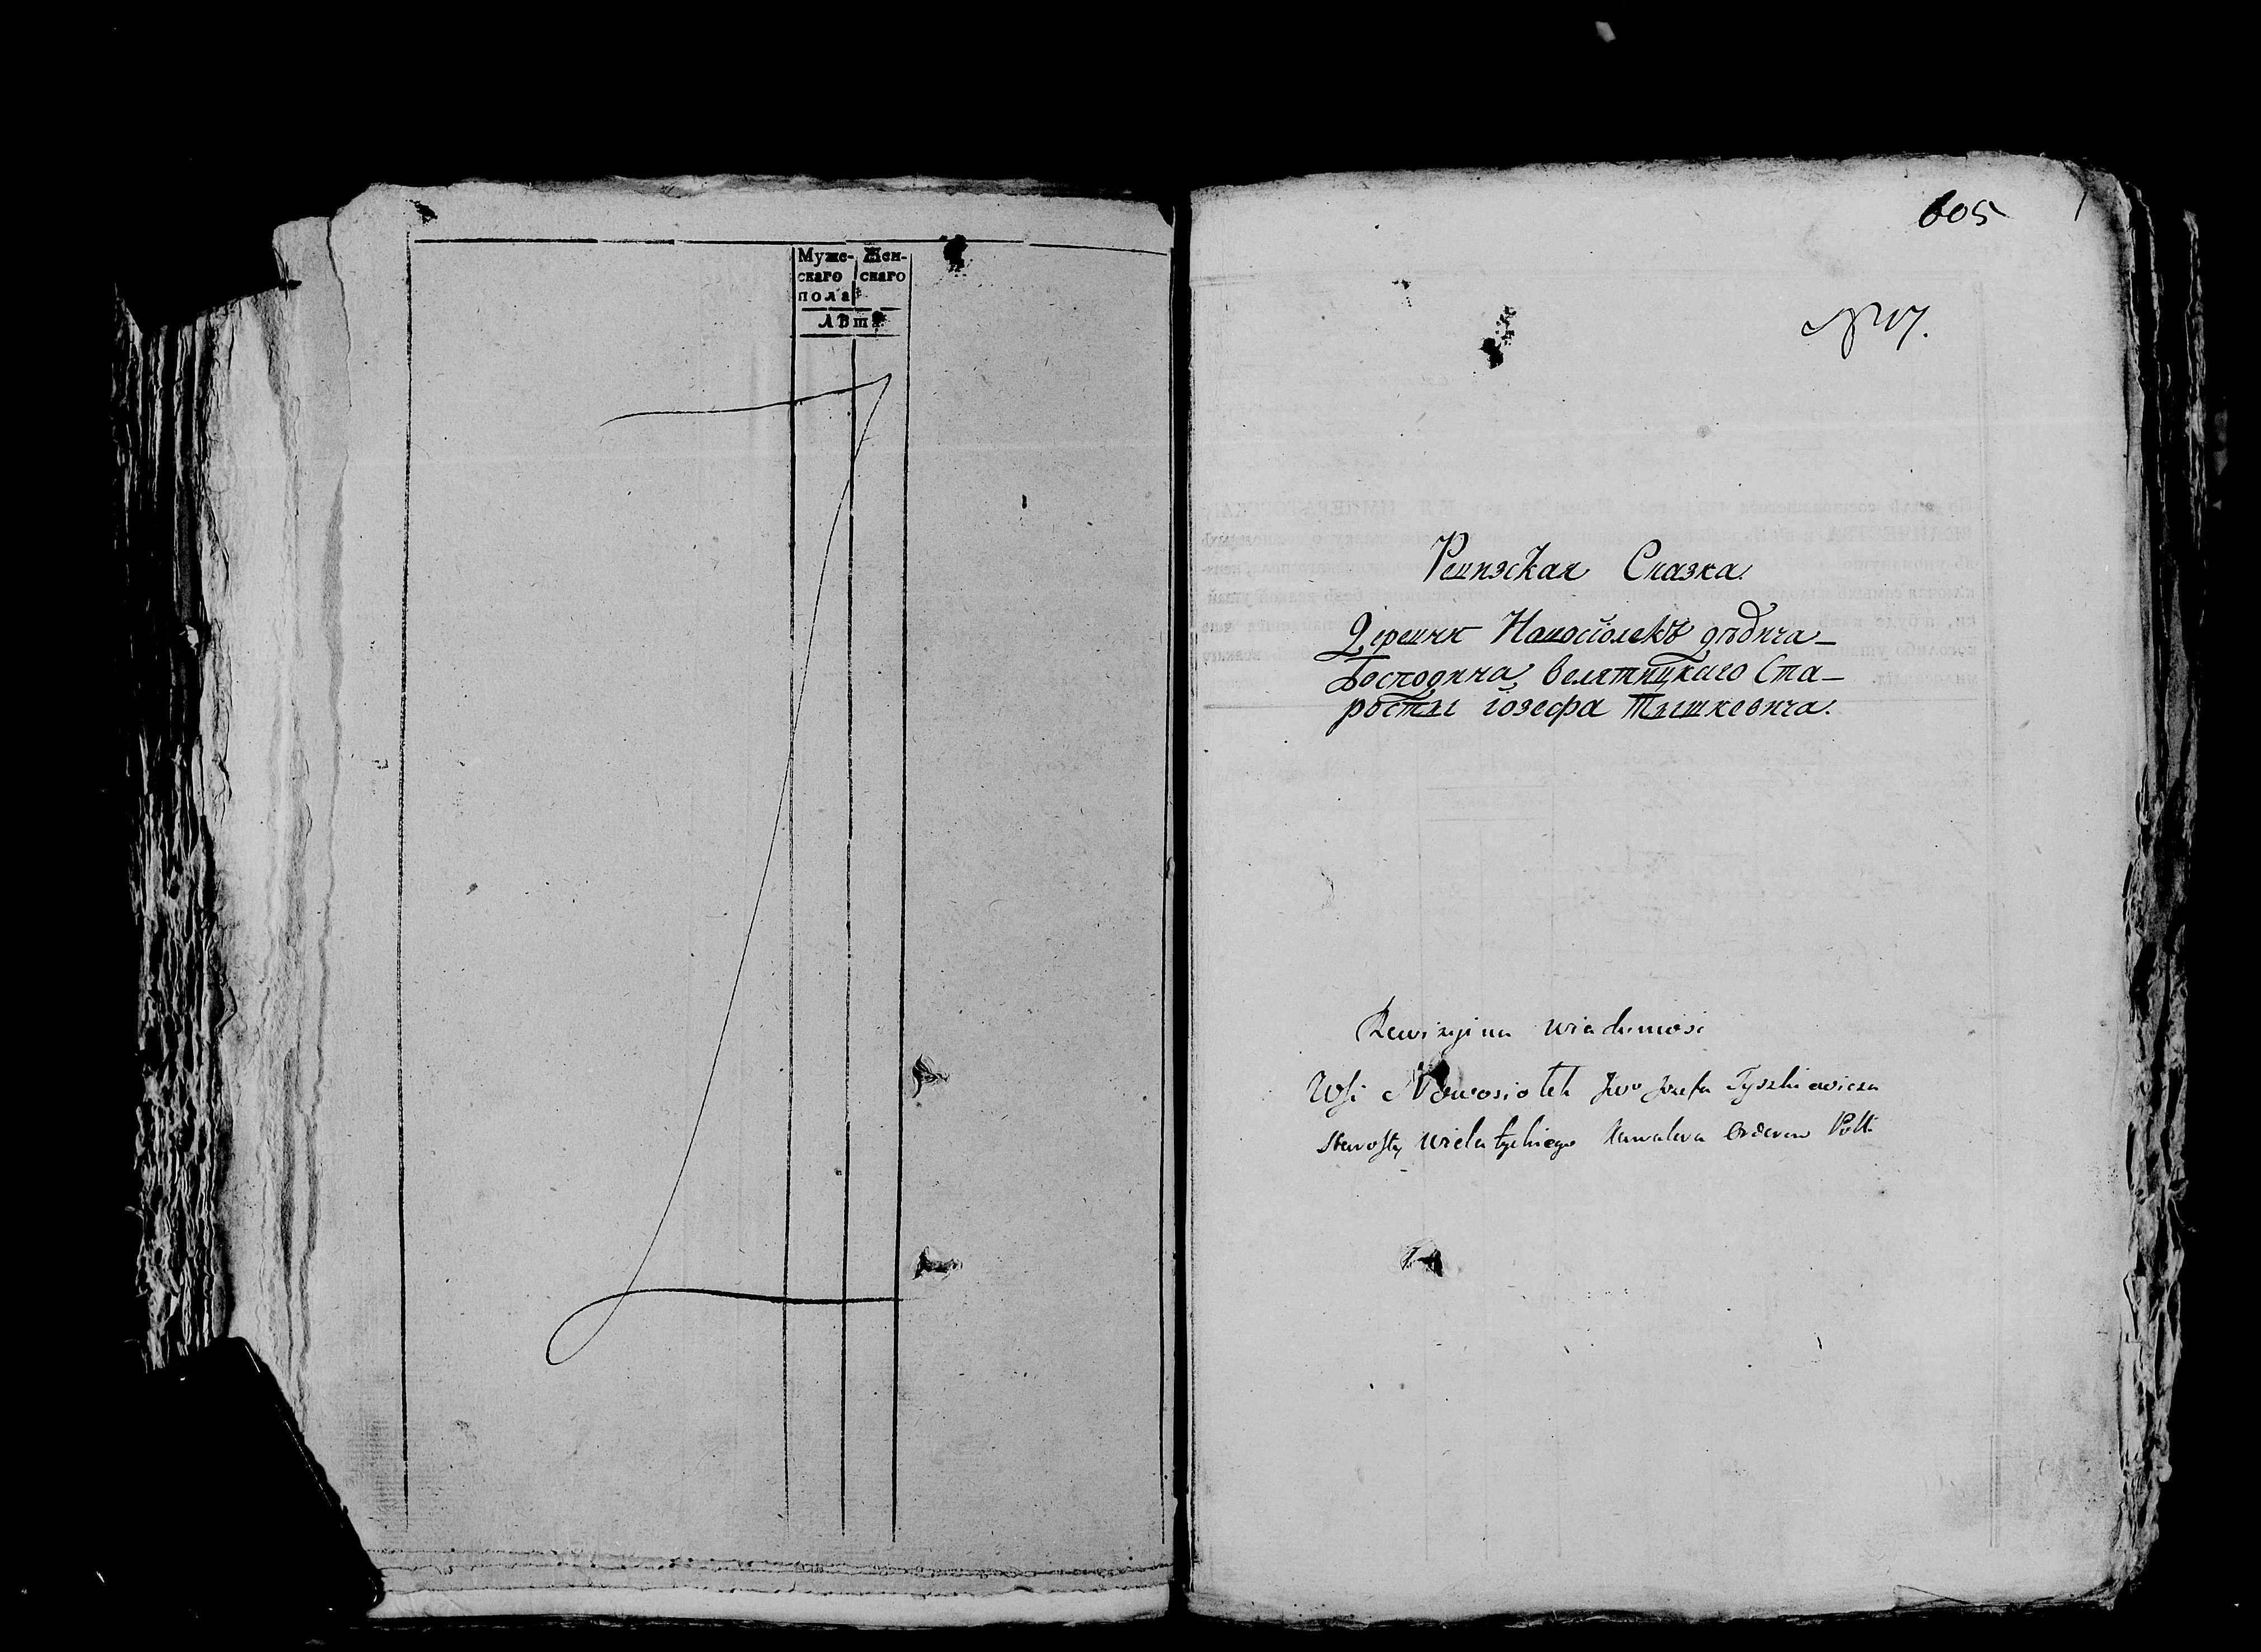 Муже- Жен-
скаго скаго
пола
Лѣта
605
№ 17.
Ревизская Сказка.
Деревни Новосiолекъ дѣдича
Господина Велятицкаго Ста-
росты iозефа Тышкевича.
Rewizyina wiadomosc
Wsi Nowosiolek Jwo Jozefa Tyszkiewicza
Starosty Wielatyckiego Kawalera Orderow Polł: